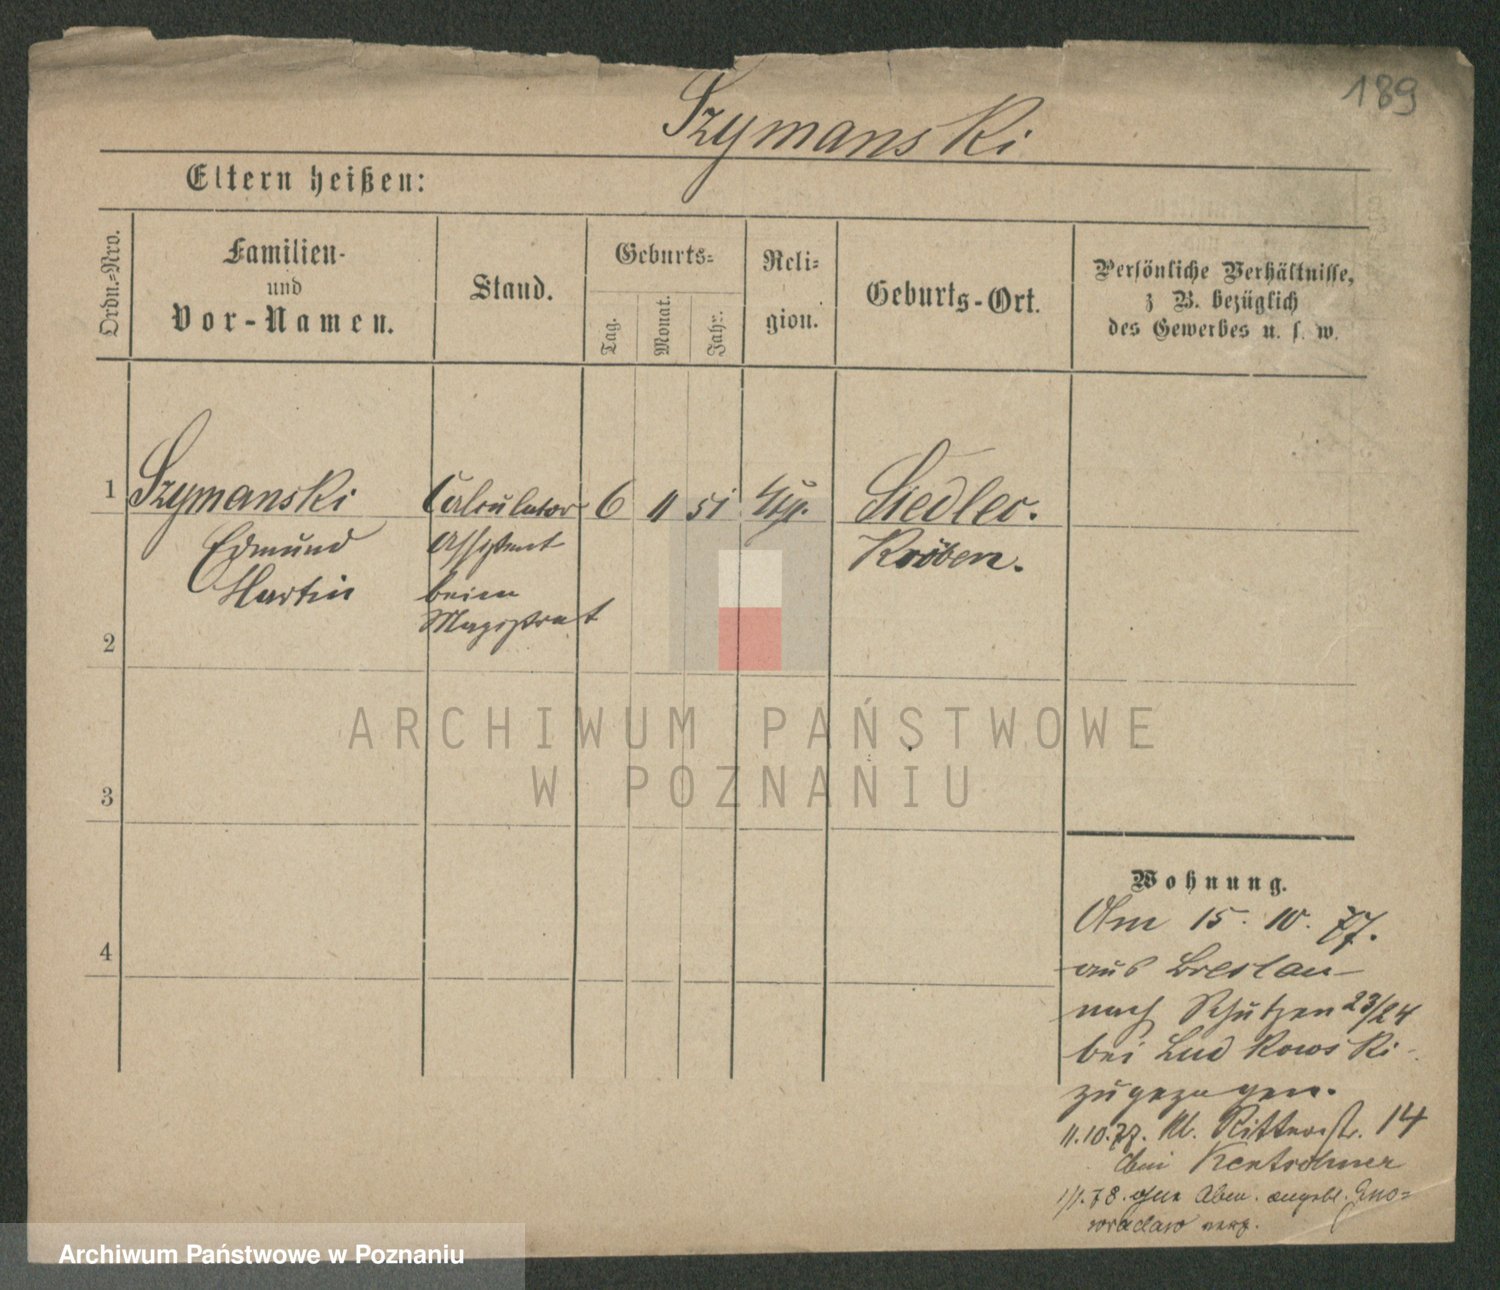 189
Szymanski
Eltern heißen:
Ordn.-Nro.
Familien-
und
Vor-Namen.
Stand.
Geburts-
Tag.
Monat.
Jahr.
Reli-
gion.
Geburts-Ort.
Persönliche Verhältnisse,
z B. bezüglich
des Gewerbes u. s. w.
1
Szymanski
Edmund
Martin
Calculator
Assistent
beim
Magistrat
6
11
51
Siedlec.
Kröben.
2
3
4
Wohnung.
Am 15. 10. 77.
aus Breslau
nach Schützen 23/24
bei Ludkowski
zugezogen.
11.10.77. Kl. Ritterstr. 14
bei
78. ohne Abm. angebl. Ino=
wraclaw verz.
ARCHIWUM PAŃSTWOWE
W POZNANIU
Archiwum Państwowe w Poznaniu